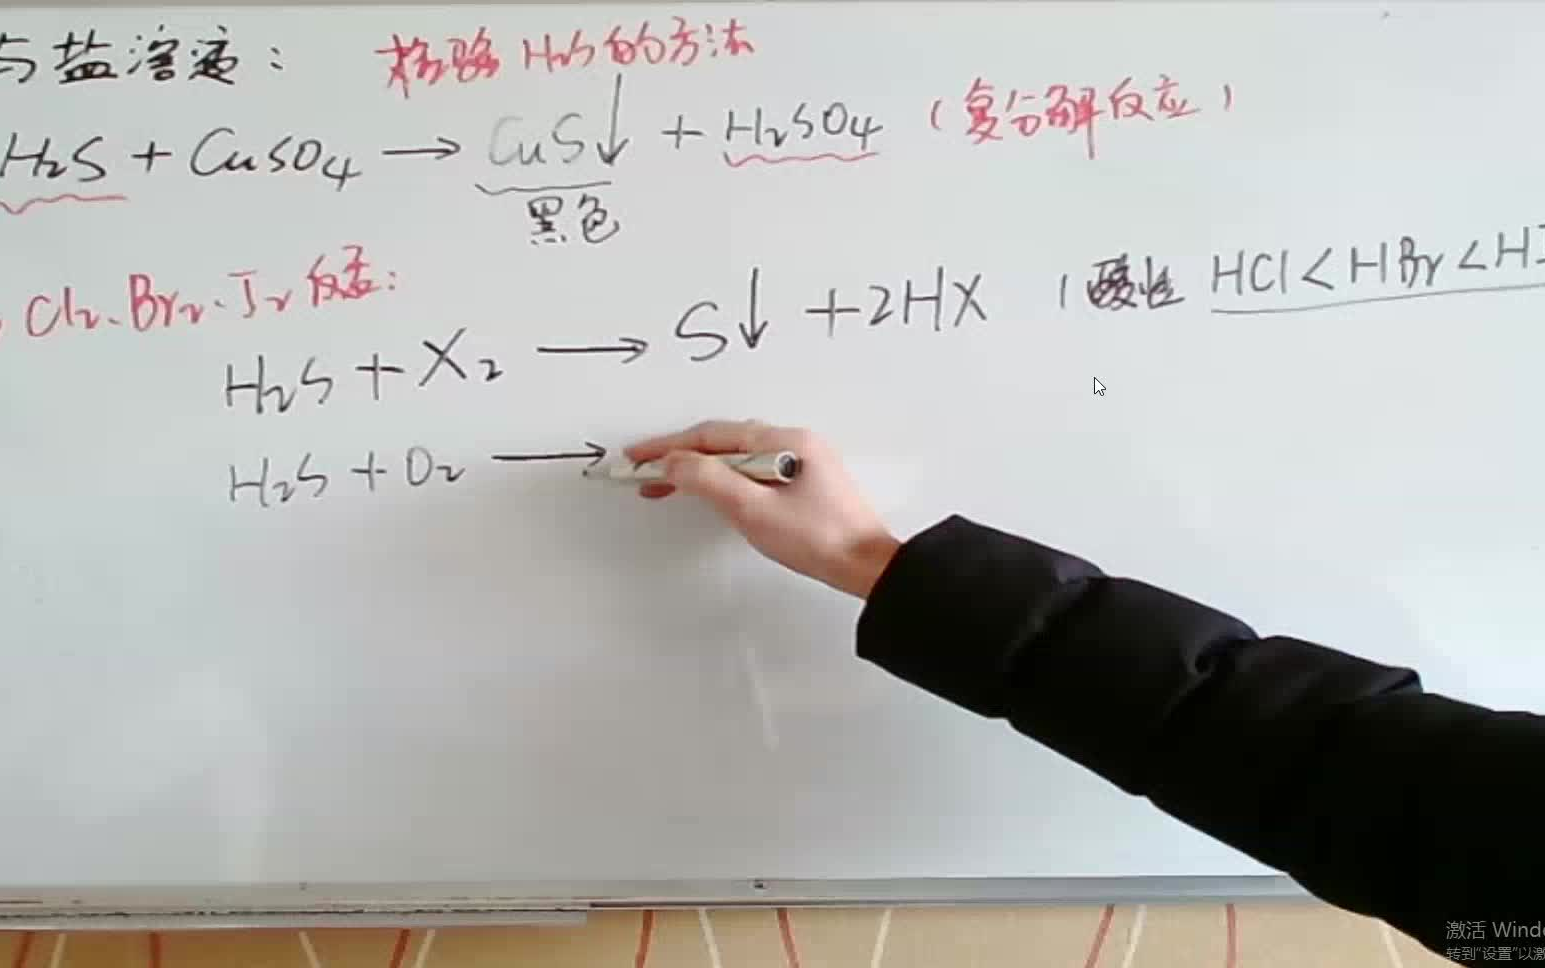 与盐溶液： 检验H₂S的方法
H₂S + CuSO₄ → CuS↓ + H₂SO₄ (复分解反应)
黑色
Cl₂、Br₂、I₂反应：
H₂S + X₂ → S↓ + 2HX (酸性 HCl < HBr < HI
H₂S + O₂ →
激活 Windo
转到"设置"以激